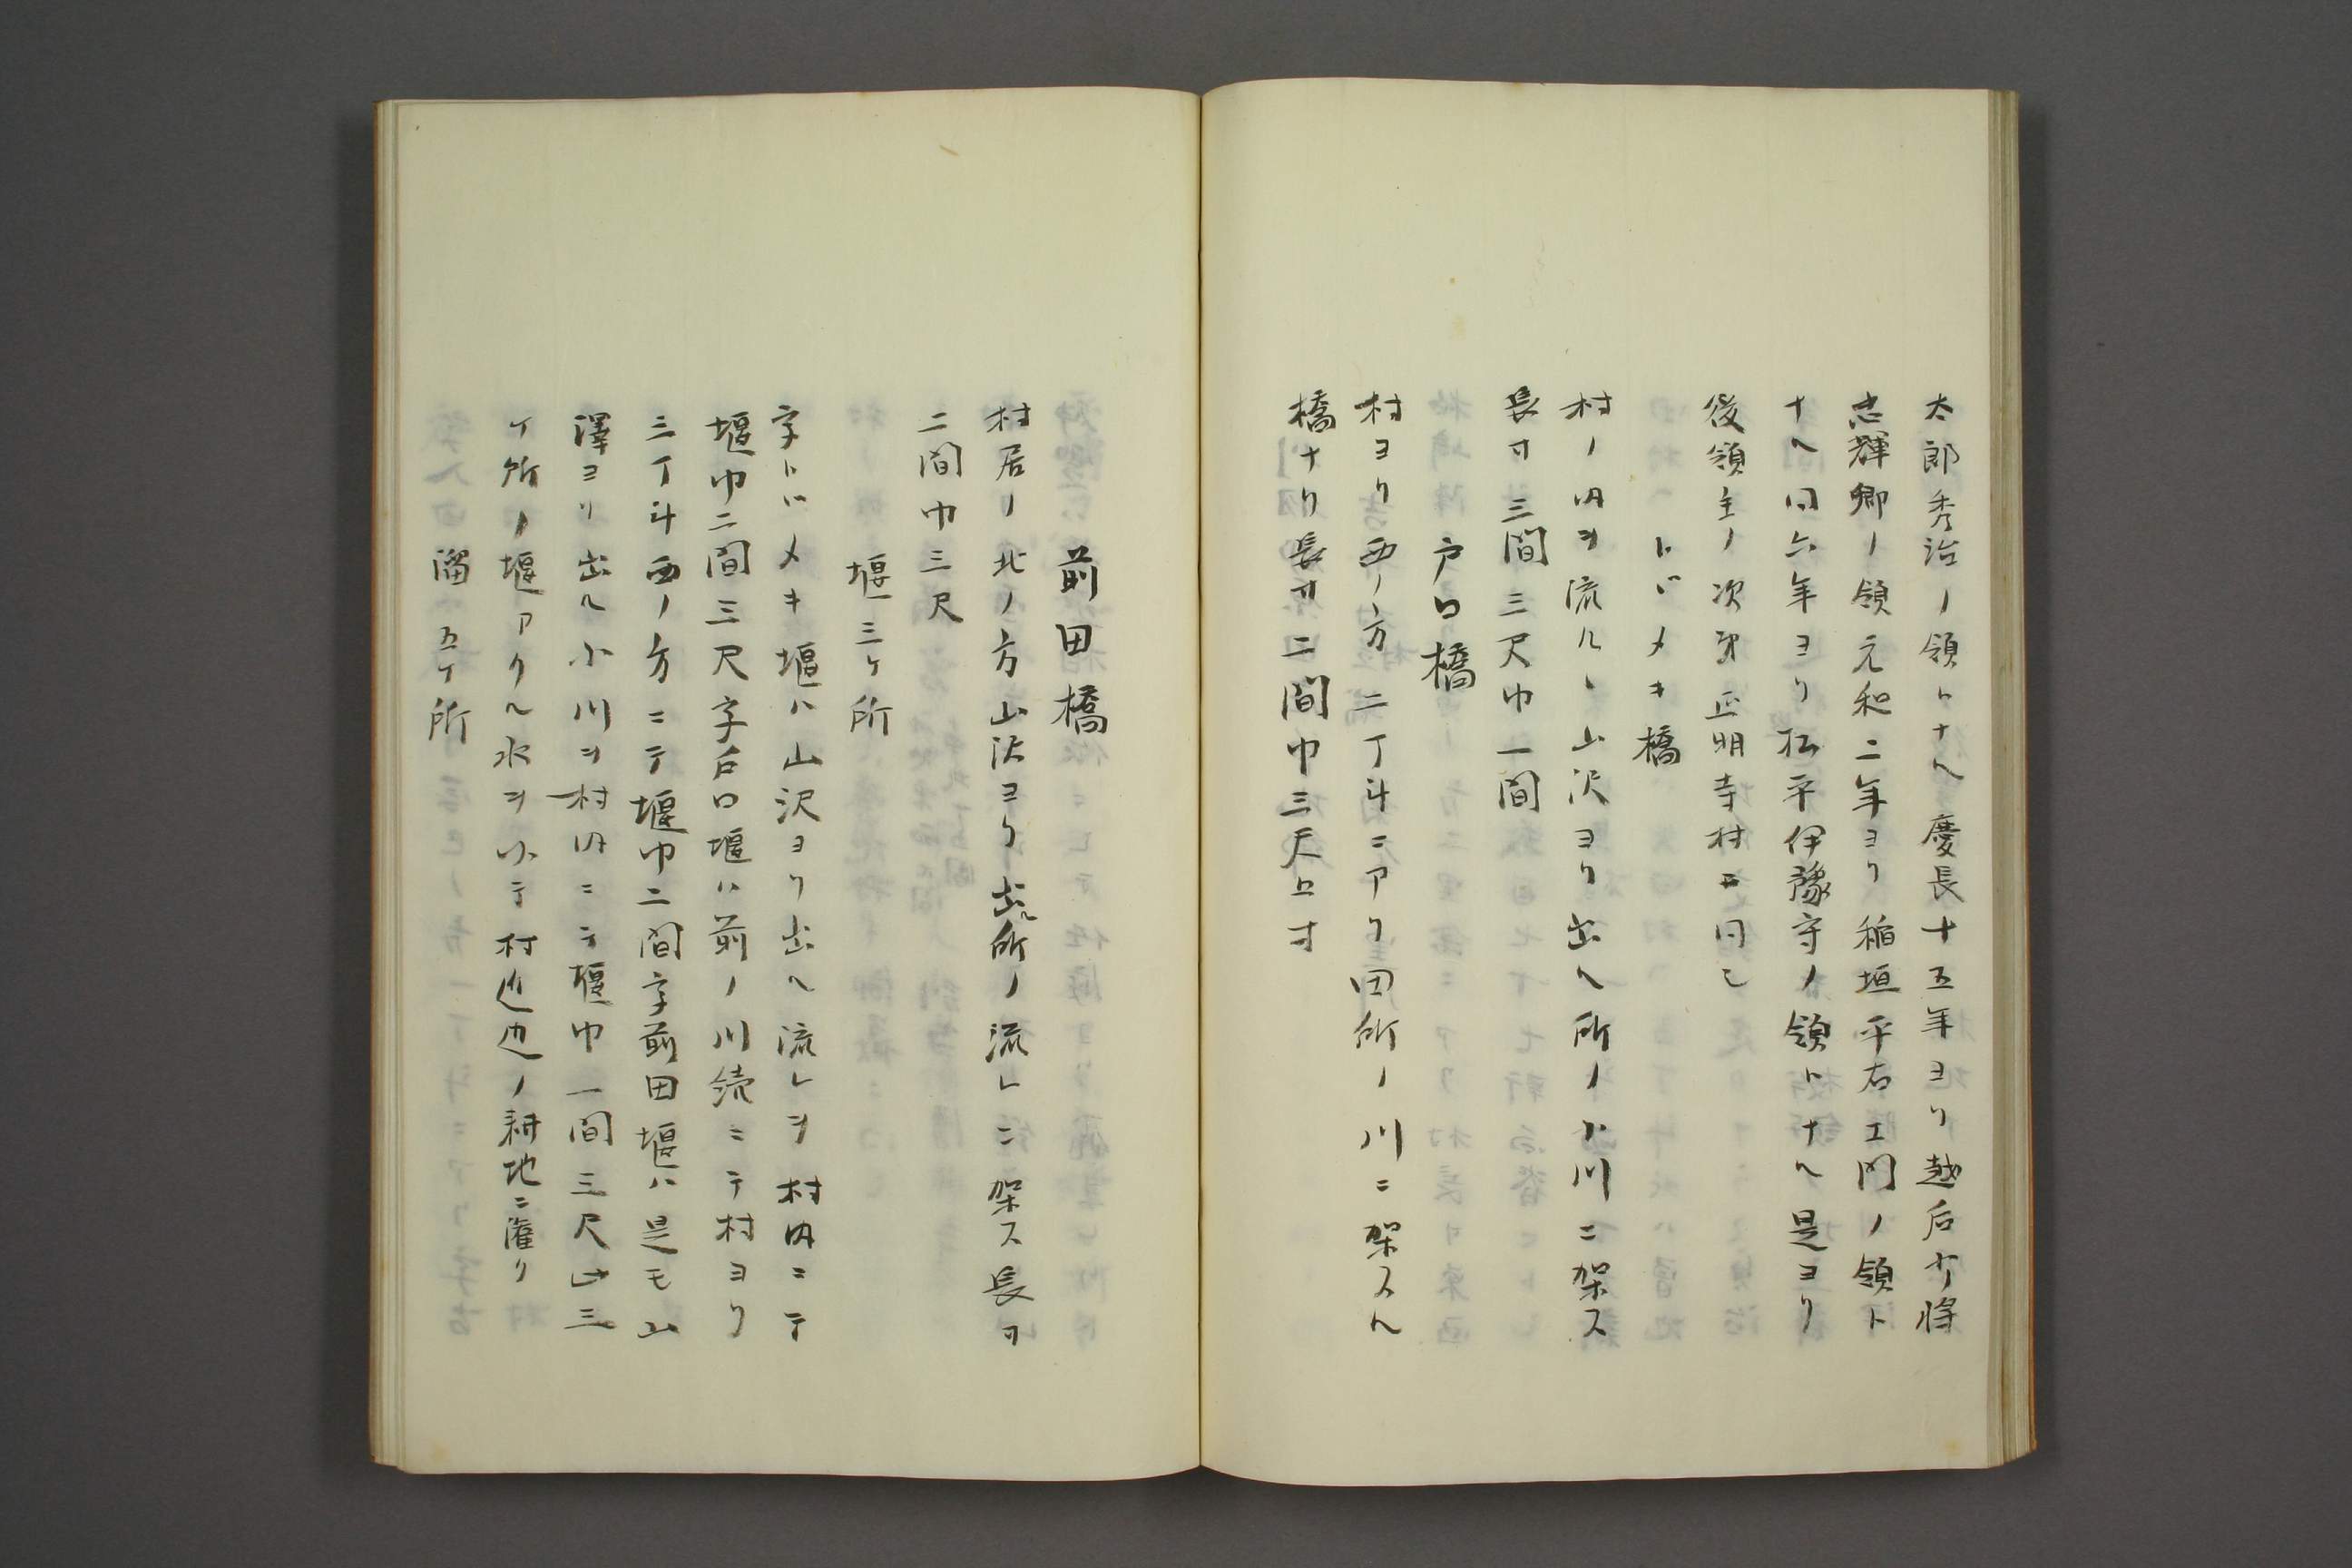 太郎秀治ノ領トナヘ慶長十五年ヨリ越后少将
忠輝卿ノ領元和二年ヨリ稲垣平右エ門ノ領ト
ナヘ同六年ヨリ松平伊豫守ノ領トナヘ是ヨリ
後領主ノ次第正明寺村ニ同シ
トヾメキ橋
村ノ内ヲ流ルヽ山沢ヨリ出ヘ所ノ小川ニ架ス
長サ三間三尺巾一間
戸口橋
村ヨリ西ノ方二丁斗ニアリ田所ノ川ニ架スル
橋ナリ長サ二間巾三尺五寸
前田橋
村居ノ北ノ方山沢ヨリ出ル所ノ流レニ架ス長サ
二間巾三尺
堰三ケ所
字トヾメキ堰ハ山沢ヨリ出ヘ流レヲ村内ニテ
堰巾二間三尺字戸口堰ハ前ノ川続ニテ村ヨリ
三丁斗西ノ方ニテ堰巾二間字前田堰ハ是モ山
澤ヨリ出ル小川ヲ村内ニテ堰巾一間三尺此三
ケ所ノ堰アクル水ヲ以テ村近辺ノ耕地ニ灌リ
溜五ケ所